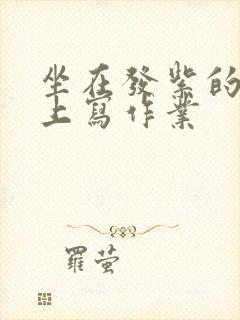 坐在發紫的
上寫作業
羅萤